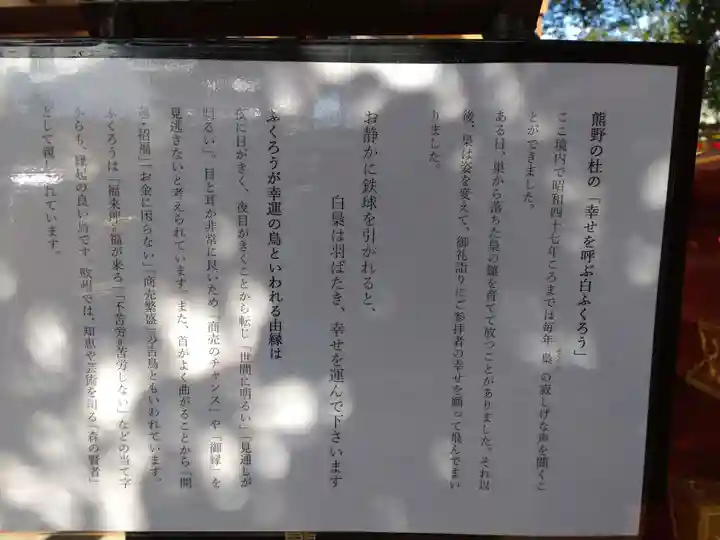 熊野の杜の「幸せを呼ぶ白ふくろう」
ここ境内で昭和四十七年ころまでは毎年、梟の寂しげな声を聞くこ
とができました。
ある日、巣から落ちた梟の雛を育てて放つことがありました。それ以
後、梟は姿を変えて、御礼詣りにご参拝者の幸せを願って飛んでまい
りました。
お静かに鉄球を引かれると、
白梟は羽ばたき、幸せを運んで下さいます
ふくろうが幸運の鳥といわれる由縁は
夜に目がきく、夜目がきくことから転じ「世間に明るい」「見通しが
明るい」。目と耳が非常に良いため「商売のチャンス」や「御縁」を
見逃さないと考えられています。また、首がよく曲がることから「開
運・招福」「お金に困らない」「商売繁盛」の吉鳥ともいわれています。
ふくろうは「福来郎=福が来る」「不苦労=苦労しない」などの当て字
からも、縁起の良い鳥です。欧州では、知恵や芸術を司る「森の賢者」
として親しまれています。